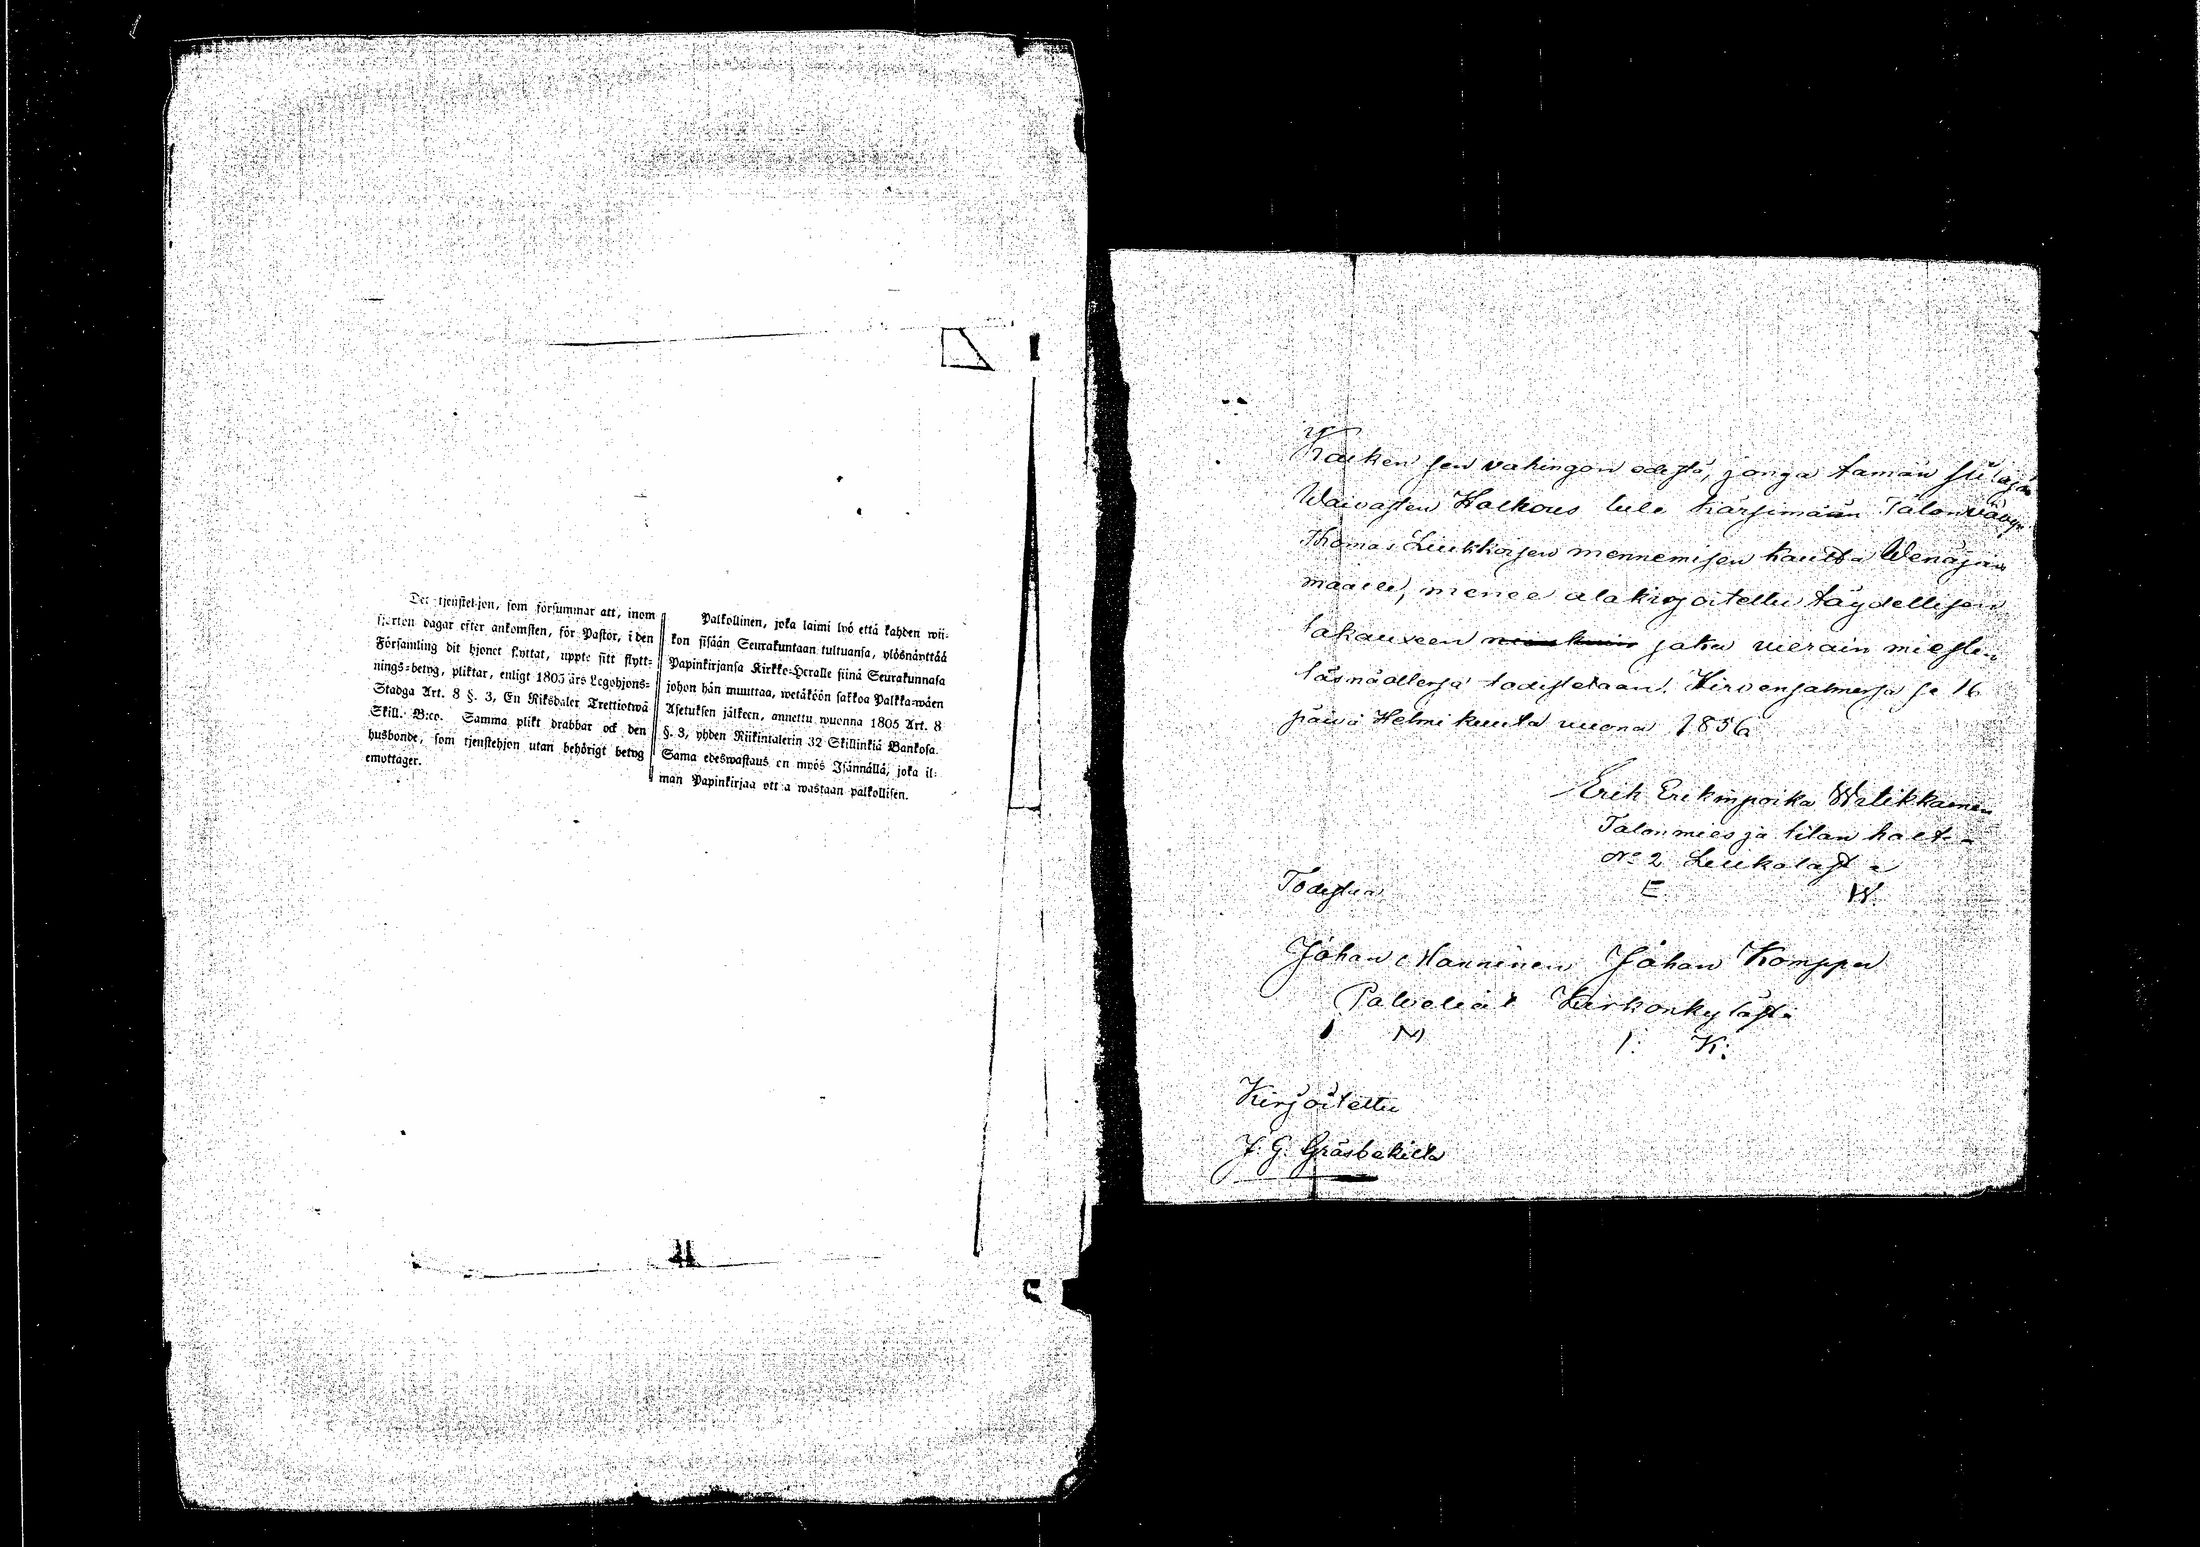 Det tjenstehjon, som försummar att, inom
fjorton dagar efter ankomsten, för Pastor, i den
Församling dit hjonet flyttat, uppte sitt flytt-
nings-betyg, pliktar, enligt 1805 års Legohjons-
Stadga Art. 8 §. 3, En Riksdaler Trettiotwå
Skill. B:co. Samma plikt drabbar ock den
husbonde, som tjenstehjon utan behörigt betyg
emottager.
Palkollinen, joka laimi lyö että kahden wii-
kon sisään Seurakuntaan tultuansa, ylösnäyttää
Papinkirjansa Kirkko-Herralle siinä Seurakunnasa
johon hän muuttaa, wetäköön sakkoa Palkka-wäen
Asetuksen jälkeen, annettu wuonna 1805 Art. 8
§. 3, yhden Riikintalerin 32 Skillinkiä Bankosa.
Sama edeswastaus on myös Isännällä, joka il-
man Papinkirjaa ottaa wastaan palkollisen.
Kaiken sen vahingon edestä, jonga tämän
Waivasten Halhous tule kärsimään
Thomas Liukkoisen mennemisen kautta Wenäjän
maalle, menee alakirjoitettu täydellisen
takauxeen joka vierain miesten
läsnäollessa todistetaan. Hirvensalmessa se 16
päivä Helmikuuta vuona 1856
Erik Erikinpoika
Talonmies ja tilan halt
No 2 Liukolasta
Todistaa
E W.
Johan Manninen Johan Komppa
Palveliat Kirkonkylästä
I M I: K:
Kirjoitettu
J. G. Gräsbäkiltä